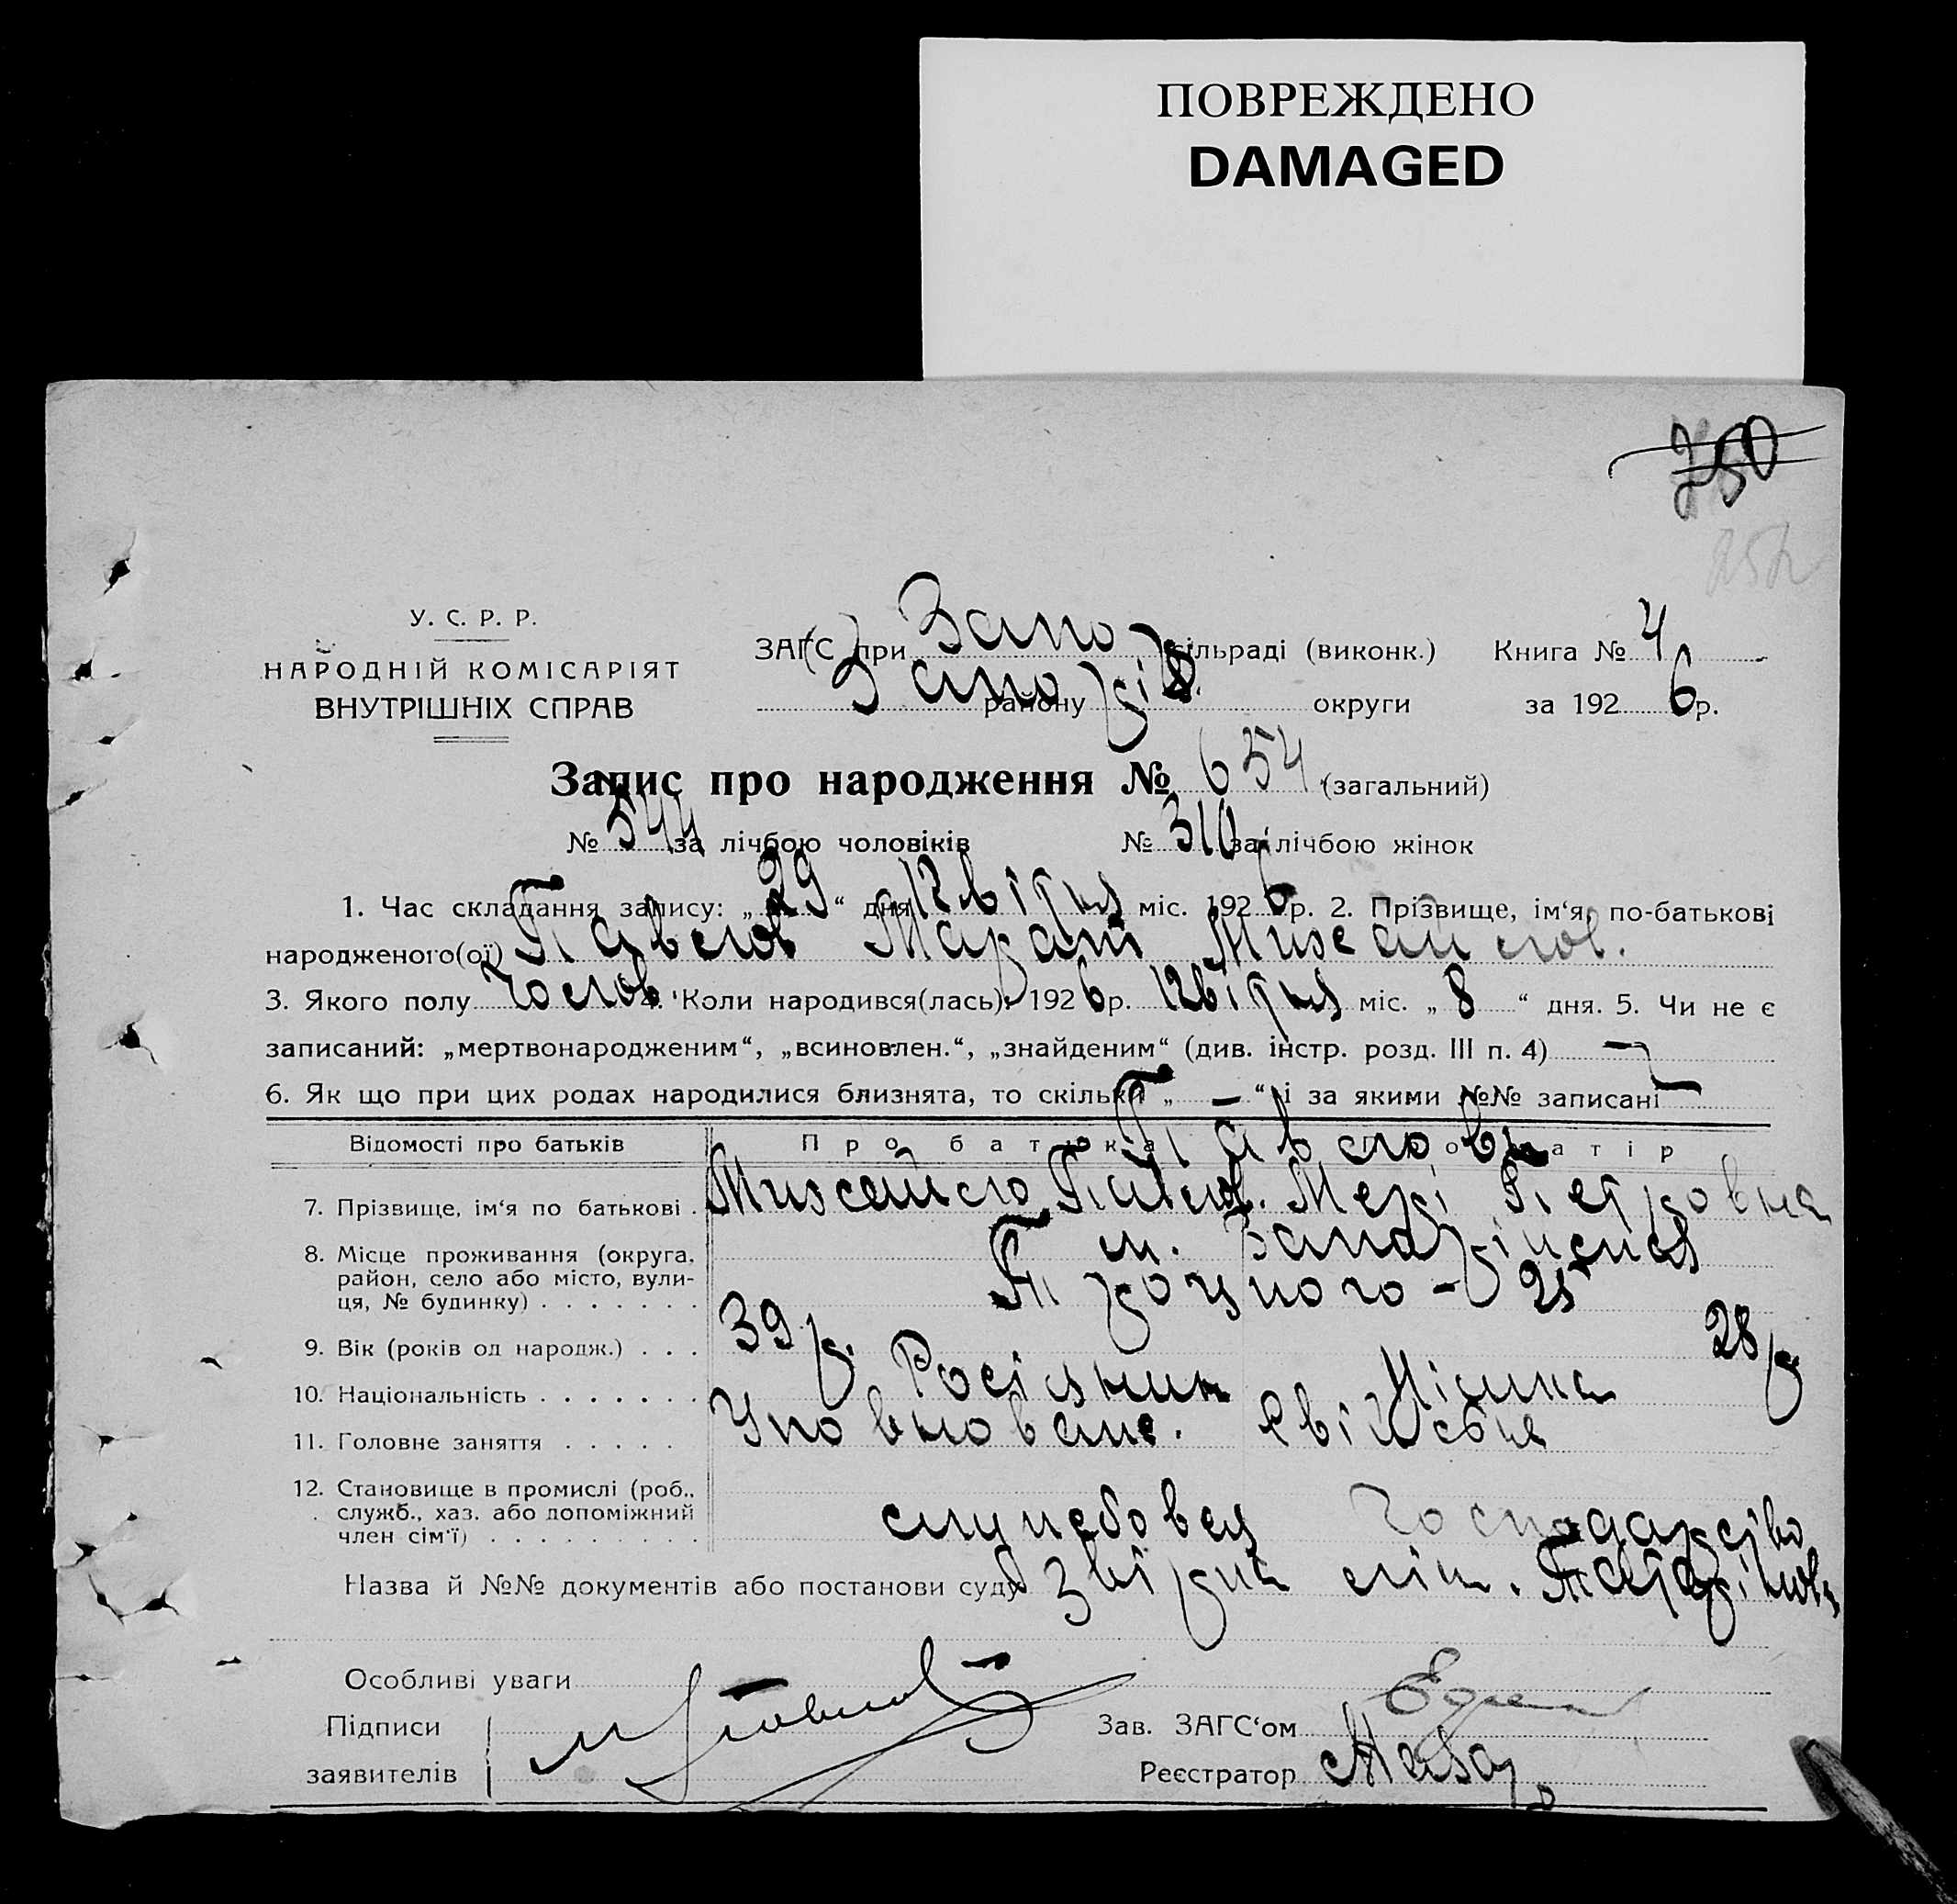 ПОВРЕЖДЕНО
DAMAGED
250
У. С. Р. Р.
НАРОДНІЙ КОМІСАРІЯТ
ВНУТРІШНІХ СПРАВ
ЗАГС при Запо сільраді (виконк.) Книга № 4
району округи за 1926 р.
Запис про народження № 654 (загальний)
№ 344 за лічбою чоловіків № 310 за лічбою жінок
1. Час складання запису: „29“ дня Квітня міс. 1926 р. 2. Прізвище, ім‘я, по-батькові
народженого(ої) Павлов Марат Михайлов.
3. Якого полу Чолов. 4. Коли народився(лась): 1926 р. Квітня міс. „8“ дня. 5. Чи не є
записаний: „мертвонародженим“, „всиновлен.“, „знайденим“ (див. інстр. розд. III п. 4) —
6. Як що при цих родах народилися близнята, то скільки „ — “ і за якими №№ записані —
Відомості про батьків Про батька Про матір
Павлови
7. Прізвище, ім‘я по батькові . Михайло Павлов. Мері Петровна
8. Місце проживання (округа, район, село або місто, вулиця, № будинку) . . . . . . . м.
Троцького - 25
9. Вік (років од народж.) . . . 39 р. 28 р.
10. Національність . . . . . . . Росіянин Німка
11. Головне заняття . . . . .
12. Становище в промислі (роб., служб., хаз. або допоміжний член сім‘ї) . . . . . . . . . службовец Господарство
Назва й №№ документів або постанови суду
Особливі уваги
Підписи
заявителів
Зав. ЗАГС‘ом
Реєстратор